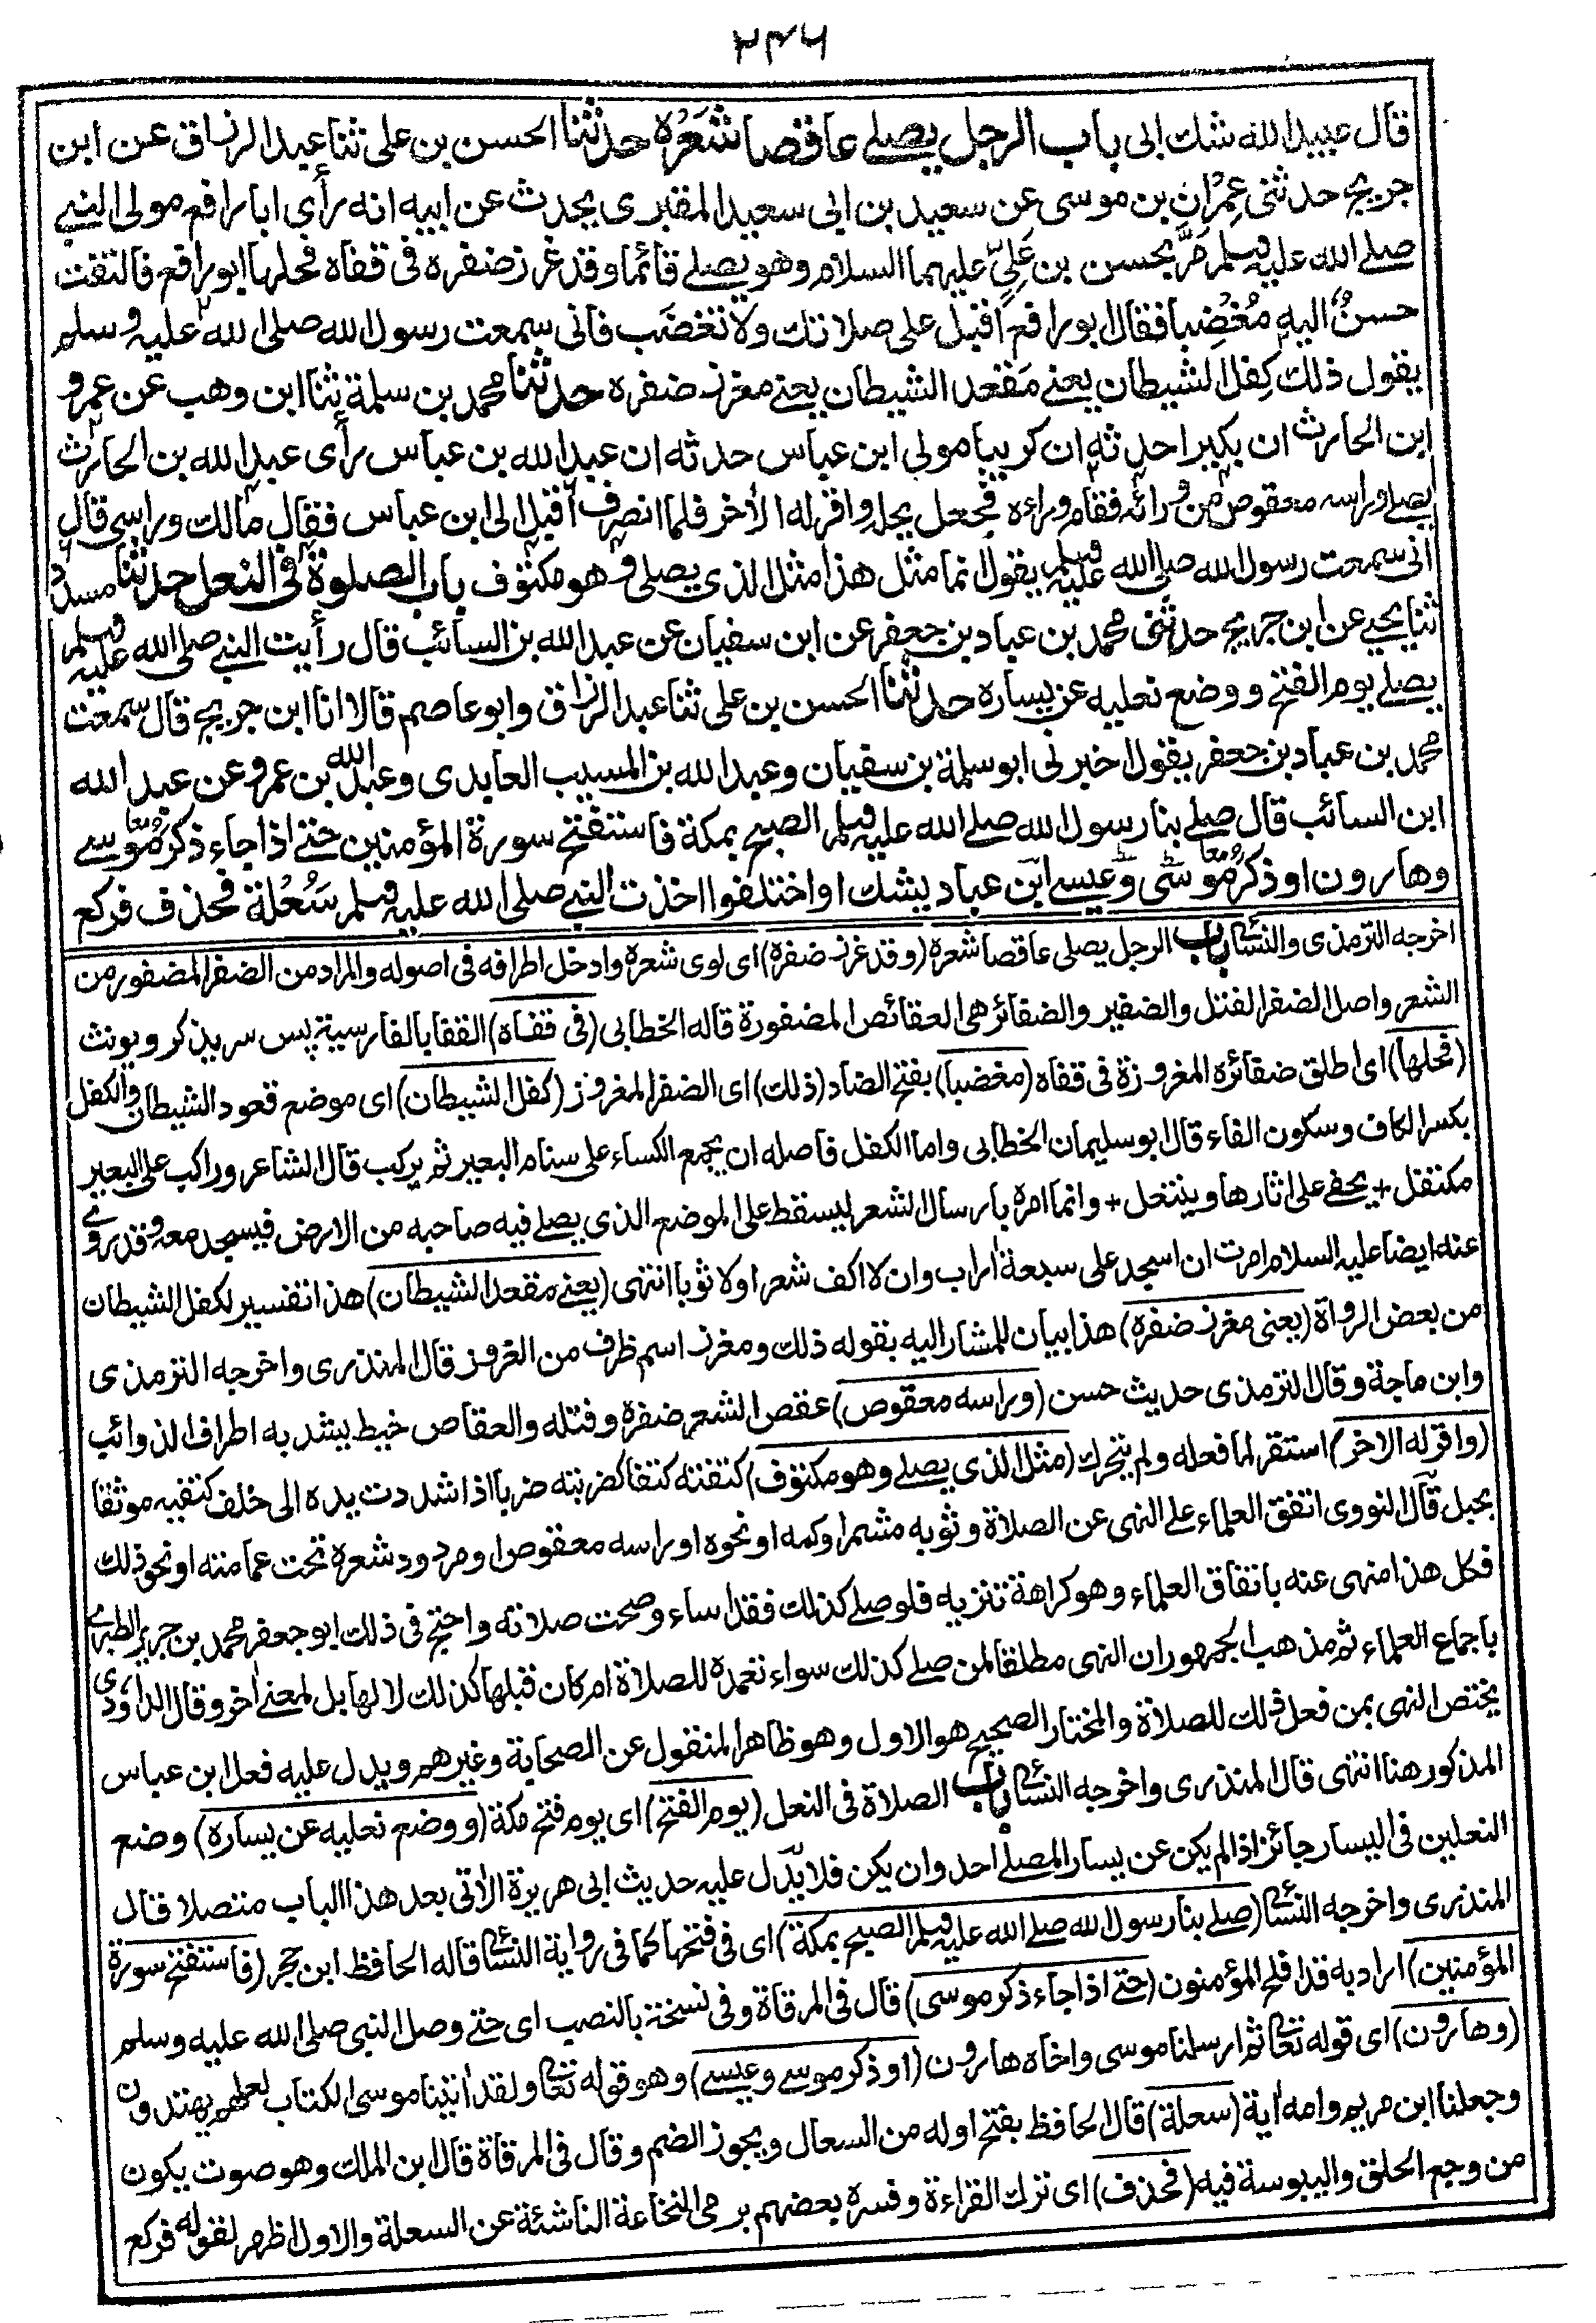 ٢٤٦
قال عبيد الله شك ابى باب الرجل يصلے عاقصا شَعْرَہ حدثنا الحسن بن على ثنا عبد الرزاق عن ابن
جريج حدثنى عِمْران بن موسى عن سعيد بن ابى سعيد المقبرى يحدث عن ابيه انه رأى ابا رافع مولى النبے
صلے الله عليه وسلم مَرَّ بحسن بن عَلِىٍّ عليهما السلام وهو يصلے قائما وقد غرز ضفره فى قفاه فحلها ابو رافع فالتفت
حسنٌ اليه مُغْضِبا فقال ابو رافع اقبل على صلاتك ولا تغضَب فانى سمعت رسول الله صلى الله عليه وسلم
يقول ذلك كِفل الشيطان يعنے مَقعد الشيطان يعنے مغرز ضفره حدثنا محمد بن سلمة ثنا ابن وهب عن عمرو
ابن الحارث ان بكيرا حدثه ان كريبا مولى ابن عباس حدثه ان عبد الله بن عباس رأى عبد الله بن الحارث
يصلے وراسه معقوص من ورائه فقام وراءه فجعل يحله واقر له الأخر فلما انصرف اقبل الى ابن عباس فقال مالك وراسى قال
انى سمعت رسول الله صلى الله عليه وسلم يقول انما مثل هذا مثل الذى يصلى وهو مكتوف باب الصلوة فى النعل حدثنا مسدد
ثنا يحيے عن ابن جريج حدثنى محمد بن عباد بن جعفر عن ابن سفيان عن عبد الله بن السائب قال رأيت النبے صلى الله عليه وسلم
يصلے يوم الفتح ووضع نعليه عن يساره حدثنا الحسن بن على ثنا عبد الرزاق وابو عاصم قالا انا ابن جريج قال سمعت
محمد بن عباد بن جعفر يقول اخبرنى ابو سلمة بن سفيان وعبد الله بن المسيب العابدى وعبد الله بن عمرو عن عبد الله
ابن السائب قال صلے بنا رسول الله صلے الله عليه وسلم الصبح بمكة فاستفتح سورة المؤمنين حتے اذا جاء ذكر موسے
وهارون او ذكر موسٰى وعيسے ابن عباد يشك او اختلفوا اخذت النبے صلى الله عليه وسلم سَعْلة فحذف فركع
اخرجه الترمذى والنسائى باب الرجل يصلى عاقصا شعره (وقد غرز ضفره) اى لوى شعره وادخل اطرافه فى اصوله والمراد من الضفر المضفور من
الشعر واصل الضفر الفتل والضفير والضفائر هى العقائص المضفورة قاله الخطابى (فى قفاه) القفا بالفارسية پس سر يذكر ويونث
(فحلها) اى اطلق ضفائره المغروزة فى قفاه (مغضبا) بفتح الضاد (ذلك) اى الضفر المغروز (كفل الشيطان) اى موضع قعود الشيطان والكفل
بكسر الكاف وسكون الفاء قال ابو سليمان الخطابى واما الكفل فاصله ان يجمع الكساء على سنام البعير ثم يركب قال الشاعر وراكب على البعير
مكتفل + يحفے على اثارها وينتعل + وانما امره بارسال الشعر ليسقط على الموضع الذى يصلے فيه صاحبه من الارض فيسجد معه وقد روے
عنه ايضا عليه السلام امرت ان اسجد على سبعة أراب وان لا اكف شعرا ولا ثوبا انتهى (يعنے مقعد الشيطان) هذا تفسير لكفل الشيطان
من بعض الرواة (يعنى مغرز ضفره) هذا بيان للمشار اليه بقوله ذلك ومغرز اسم ظرف من الغروز قال المنذرى واخرجه الترمذى
وابن ماجة وقال الترمذى حديث حسن (وراسه معقوص) عقص الشعر ضفره وفتله والعقاص خيط يشد به اطراف الذوائب
(واقر له الاخر) استقر لما فعله ولم يتحرك (مثل الذى يصلے وهو مكتوف) كتفته كتفا كضربته ضربا اذا شددت يده الى خلف كتفيه موثقا
بحبل قال النووى اتفق العلماء على النهى عن الصلاة وثوبه مشمر او كمه او نحوه او راسه معقوص او مردود شعره تحت عمامته او نحو ذلك
فكل هذا منهى عنه باتفاق العلماء وهو كراهة تنزيه فلو صلے كذلك فقد اساء وصحت صلاته واحتج فى ذلك ابو جعفر محمد بن جرير الطبرے
باجماع العلماء ثم مذهب الجمهور ان النهى مطلقا لمن صلے كذلك سواء تعمده للصلاة ام كان قبلها كذلك لا لها بل لمعنے أخر وقال الداودى
يختص النهى بمن فعل ذلك للصلاة والمختار الصحيح هو الاول وهو ظاهر المنقول عن الصحابة وغيرهم ويدل عليه فعل ابن عباس
المذكور هنا انتهى قال المنذرى واخرجه النسائى باب الصلاة فى النعل (يوم الفتح) اى يوم فتح مكة (ووضع نعليه عن يساره) وضع
النعلين فى اليسار جائز اذا لم يكن عن يسار المصلے احد وان يكن فلا يدل عليه حديث ابى هريرة الأتى بعد هذا الباب متصلا قال
المنذرى واخرجه النسائى (صلے بنا رسول الله صلے الله عليه وسلم الصبح بمكة) اى فى فتحها كما فى رواية النسائى قاله الحافظ ابن حجر (فاستفتح سورة
المؤمنين) اراد به قد افلح المؤمنون (حتے اذا جاء ذكر موسى) قال فى المرقاة وفى نسخة بالنصب اى حتے وصل النبى صلى الله عليه وسلم
(وهارون) اى قوله تعالى ثم ارسلنا موسى واخاه هارون (او ذكر موسے وعيسے) وهو قوله تعالى ولقد اتينا موسى الكتاب لعلهم يهتدون
وجعلنا ابن مريم وامه أية (سعلة) قال الحافظ بفتح اوله من السعال ويجوز الضم وقال فى المرقاة قال ابن الملك وهو صوت يكون
من وجع الحلق واليبوسة فيه (فحذف) اى ترك القراءة وفسره بعضهم برمى النخاعة الناشئة عن السعلة والاول اظهر لقوله فركع